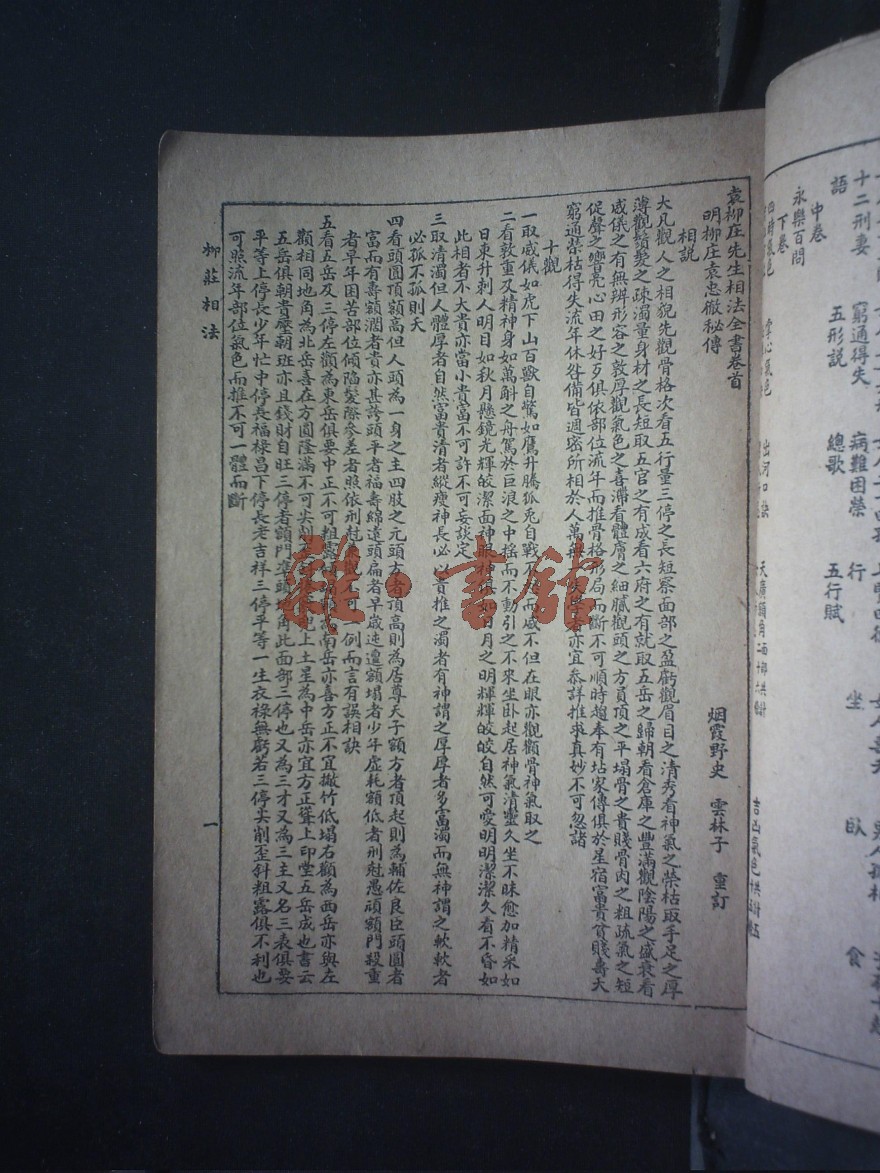 袁柳庄先生相法全書卷首
明柳庄袁忠徹秘傳
烟霞野史 雲林子 重訂
相説
大凡觀人之相貌先觀骨格次看五行量三停之長短察面部之盈虧觀眉目之清秀看神氣之榮枯取手足之厚
薄觀鬚髮之疎濁量身材之長短取五官之有成看六府之有就取五岳之歸朝看倉庫之豐滿觀陰陽之盛衰看
威儀之有無辨形容之敦厚觀氣色之喜滯看體膚之細膩觀頭之方員頂之平塌骨之貴賤骨肉之粗疏氣之短
促聲之響亮心田之好歹俱依部位流年而推骨格形局而断不可順時趨奉有玷家傳俱於星宿富貴貧賤壽夭
窮通榮枯得失流年休咎備皆週密所相於人萬無一
亦宜叅詳推求真妙不可忽諸
十觀
一取威儀如虎下山百獸自驚如鷹升騰狐兔自戰不
而威不但在眼亦觀顴骨神氣取之
二看敦重及精神身如萬斛之舟駕於巨浪之中揺而不動引之不來坐卧起居神氣清靈久坐不昧愈加精采如
日東升刺人明目如秋月懸鏡光輝皎潔面神眼神俱如日月之明輝輝皎皎自然可愛明明潔潔久看不昏如
此相者不大貴亦當小貴富不可許不可妄談定
三取清濁但人體厚者自然富貴清者縱瘦神長必以貴推之濁者有神謂之厚厚者多富濁而無神謂之軟軟者
必孤不孤則夭
四看頭圓頂額高但人頭為一身之主四肢之元頭方者頂高則為居尊天子額方者頂起則為輔佐良臣頭圓者
富而有壽額濶者貴亦甚誇頭平者福壽綿遠頭扁者早歲迍邅額塌者少年虚耗額低者刑尅愚頑額門殺重
者早年困苦部位傾陷髮際參差者照依刑尅
觀不可一例而言有誤相訣
五看五岳及三停左顴為東岳俱要中正不可粗露傾
南岳亦喜方正不宜撇竹低塌右顴為西岳亦與左
顴相同地角為北岳喜在方圓隆滿不可尖削歪
上土星為中岳亦宜方正聳上印堂五岳成也書云
五岳俱朝貴壓朝班亦且錢財自旺三停者額門準頭地角此面部三停也又為三才又為三主又名三表俱要
平等上停長少年忙中停長福祿昌下停長老吉祥三停平等一生衣祿無虧若三停尖削歪斜粗露俱不利也
可照流年部位氣色而推不可一體而斷
柳莊相法
一
十二刑妻 窮通得失 病難困榮 行 坐 卧 食
語 五形説 總歌 五行賦
中卷
永樂百問
下卷
雜·書館